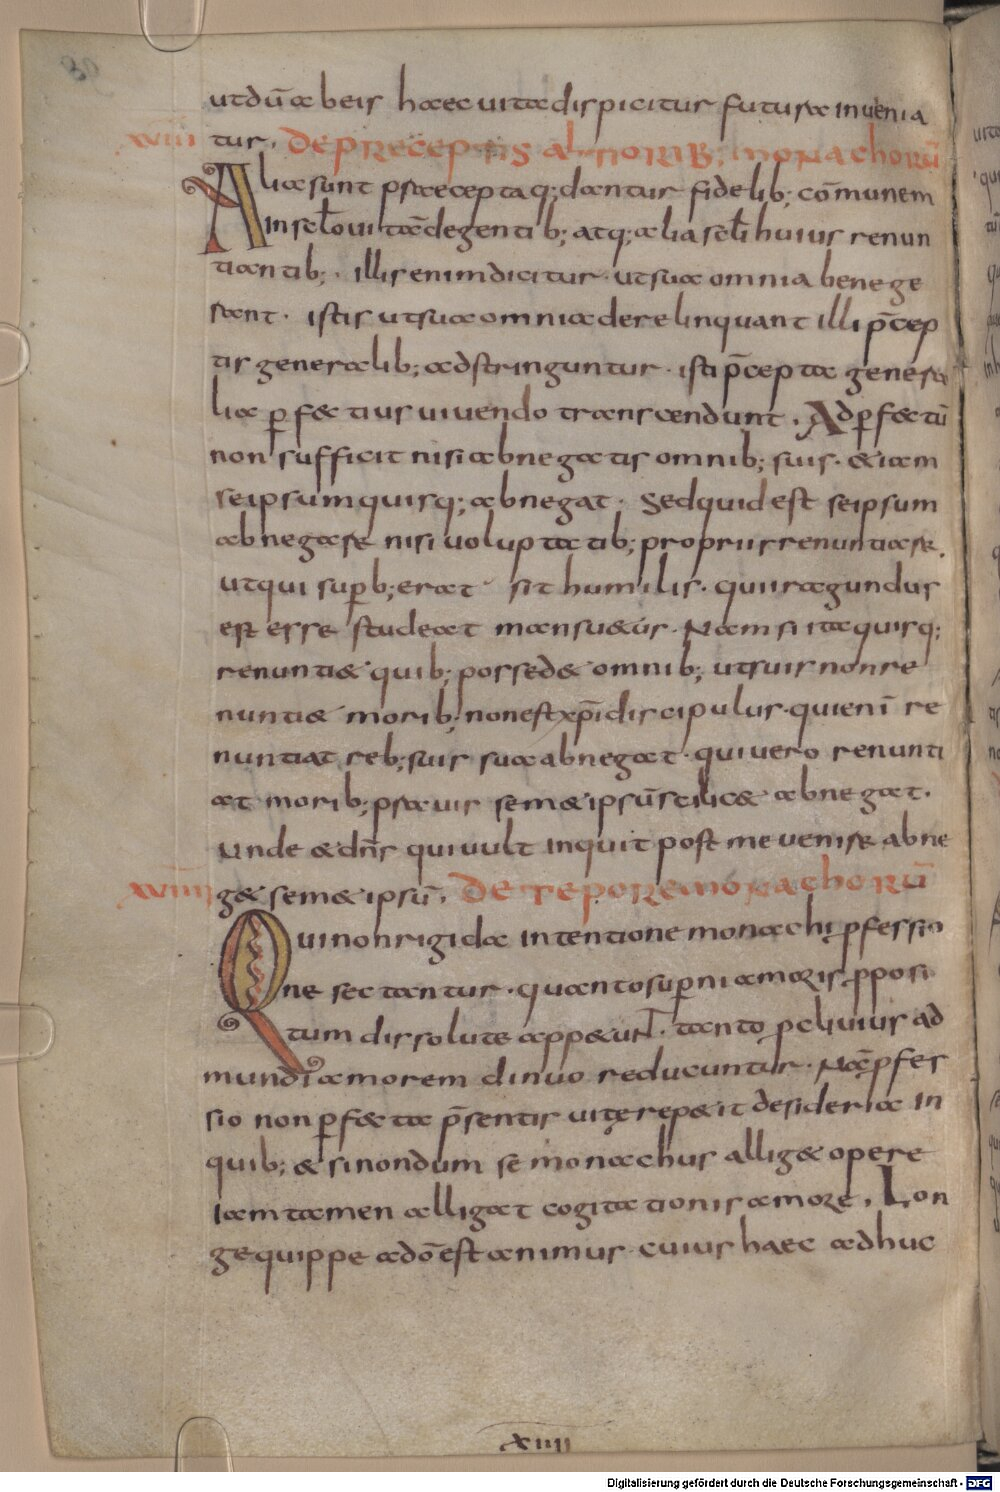 utdū abeis haec uita dispicitur futura inuenia
xviii tur. de preceptis altiorib; monachorū
Alia sunt praecepta q; dantur fidelib; cōmunem
in sclo uitā degentib; atq; alia scli huius renun
tiantib;. illis enim dicitur ut sua omnia bene ge
rant. istis ut sua omnia derelinquant illi p̄cep
tis generalib; adstringuntur. isti p̄cepta genera
lia perf&ctius uiuendo transcendunt. Ad perf&ctū
non sufficit nisi abnegatis omnib; suis. &iam
seipsum quisq; abnegat. Sed quid est seipsum
abnegare nisi uoluptatib; propriis renuntiare.
ut qui superb; erat sit humilis. qui iragundus
est esse studeat mansu&us. Nam si ita quisq;
renunti& quib; possed& omnib; ut suis non re
nunti& morib; non est xp̄i discipulus. qui enī re
nuntiat reb; suis sua abnegat. qui uero renunti
at morib; prauis sem&ipsū scilic& abnegat.
Unde & dn̄s qui uult inquit post me uenire abne
xviiii g& sem&ipsū. De tepore monachorū
Qui non rigida intentione monachi professio
ne sectantur. quanto superni amoris proposi
tum dissolute app&unt. tanto procliuius ad
mundi amorem dinuo reducuntur. Nā profes
sio non perf&cta p̄sentis uitę rep&it desideria in
quib; & si nondum se monachus allig& opere
iam tamen alligat cogitationis amore. Lon
ge quippe a dō est animus cuius haec adhuc
XIIII
Digitalisierung gefördert durch die Deutsche Forschungsgemeinschaft - DFG